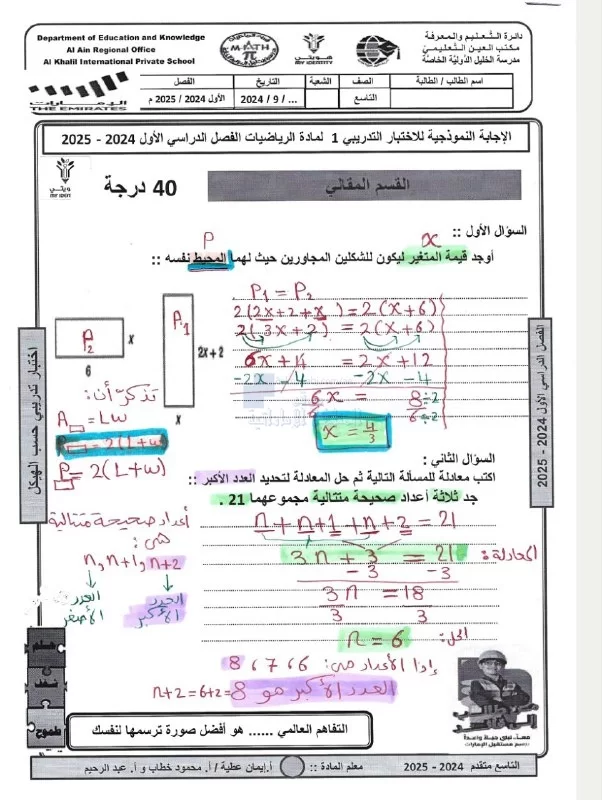 Department of Education and Knowledge
Al Ain Regional Office
Al Khalil International Private School
دائرة التعليم والمعرفة
مكتب العين التعليمي
مدرسة الخليل الدولية الخاصة
M-ATH
π
هويتي
الإمارات
THE EMIRATES
اسم الطالب / الطالبة
الصف
الشعبة
التاريخ
الفصل
التاسع
... / 9 / 2024
الأول 2024 / 2025 م
الإجابة النموذجية للاختبار التدريبي 1 لمادة الرياضيات الفصل الدراسي الأول 2024 - 2025
هويتي
MY IDENTITY
القسم المقالي
40 درجة
السؤال الأول ::
P
x
أوجد قيمة المتغير ليكون للشكلين المجاورين حيث لهما المحيط نفسه ::
P₁ = P₂
2(2x+2+x) = 2(x+6)
2(3x+2) = 2(x+6)
6x + 4 = 2x + 12
-2x - 4 -2x - 4
6x = 8 ÷2
6 6 ÷2
x = 4/3
P₂
x
6
P₁
2x + 2
x
تذكر أن:
A = Lw
= 2(L+w)
P = 2(L+w)
السؤال الثاني :
اكتب معادلة للمسألة التالية ثم حل المعادلة لتحديد العدد الأكبر ::
جد ثلاثة أعداد صحيحة متتالية مجموعهما 21 .
n + n+1 + n+2 = 21
المعادلة: 3n + 3 = 21
- 3 -3
3n = 18
3 3
الحل: n = 6
إذا الأعداد هي: 6 ، 7 ، 8
العدد الأكبر هو 8 = 6+2 = n+2
أعداد صحيحة متتالية
هي:
n, n+1, n+2
العدد الأصغر
العدد الأكبر
اختبار تدريبي حسب الهيكل
الفصل الدراسي الأول 2024 - 2025
حلم
شغف
طموح
معاً نبني حياة واعدة
نرسم مستقبل الإمارات
التفاهم العالمي ...... هو أفضل صورة ترسمها لنفسك
التاسع متقدم 2024 - 2025
معلم المادة :: أ.إيمان عطية / أ. محمود خطاب و أ. عبد الرحيم